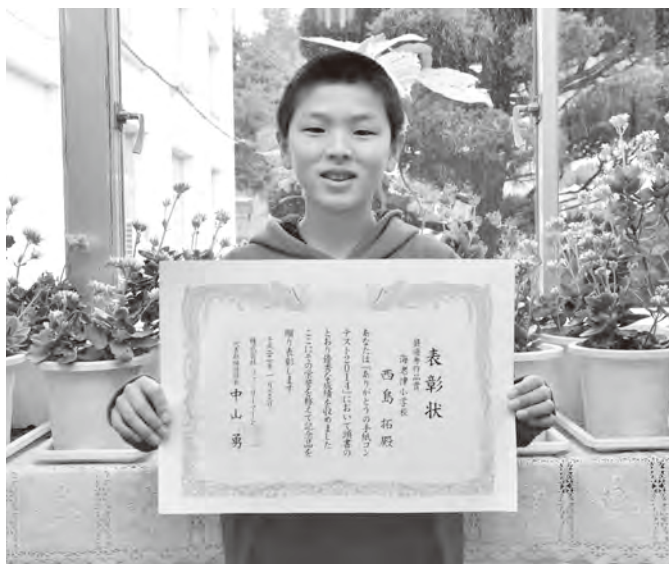 表彰状
最優秀作品賞
海老津小学校
西島 拓殿
あなたは「ありがとうの手紙コン
テスト2014」において頭書の
とおり優秀な成績を収めました
ここにその栄誉を称えて記念品を
贈り表彰します
中山 勇